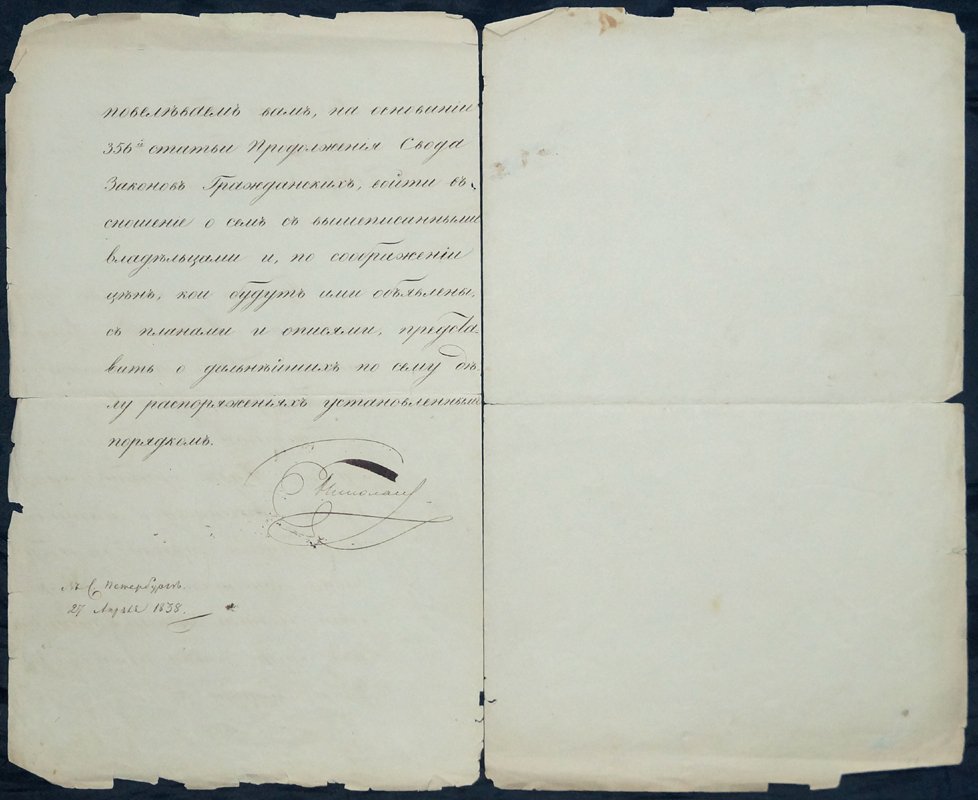 повелѣваемъ вамъ, на основаніи
356й статьи Продолженія Свода
Законовъ Гражданскихъ, войти въ
сношеніе о семъ съ вышеписанными
владѣльцами и, по соображеніи
цѣнъ, кои будутъ ими объявлены,
съ планами и описями, предста-
вить о дальнѣйшихъ по сему дѣ-
лу распоряженіяхъ установленнымъ
порядкомъ.
Николай
Въ С. Петербургѣ.
27 Апрѣля 1838.